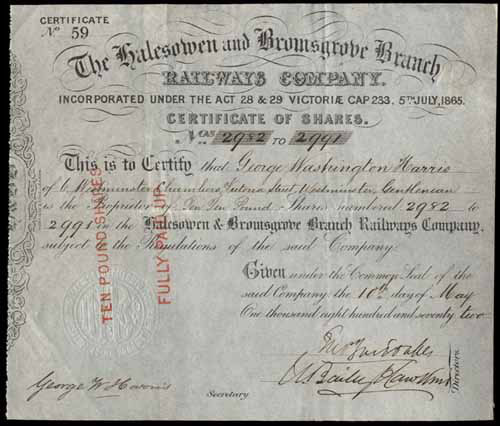 CERTIFICATE
No 59
The Halesowen and Bromsgrove Branch
RAILWAYS COMPANY.
INCORPORATED UNDER THE ACT 28 & 29 VICTORIÆ CAP 233. 5TH JULY, 1865.
CERTIFICATE OF SHARES.
Nos 2982 TO 2991
This is to Certify that George Washington Harris
of 6 Westminster Chambers Victoria Street, Westminster, Gentleman
is the Proprietor of Ten Ten Pound Shares numbered 2982 to
2991 in the Halesowen & Bromsgrove Branch Railways Company,
subject to the Regulations of the said Company.
Given under the Common Seal of the
said Company the 10th day of May
One thousand eight hundred and seventy two
TEN POUND SHARES
FULLY PAID UP
Directors
George W Harris
Secretary